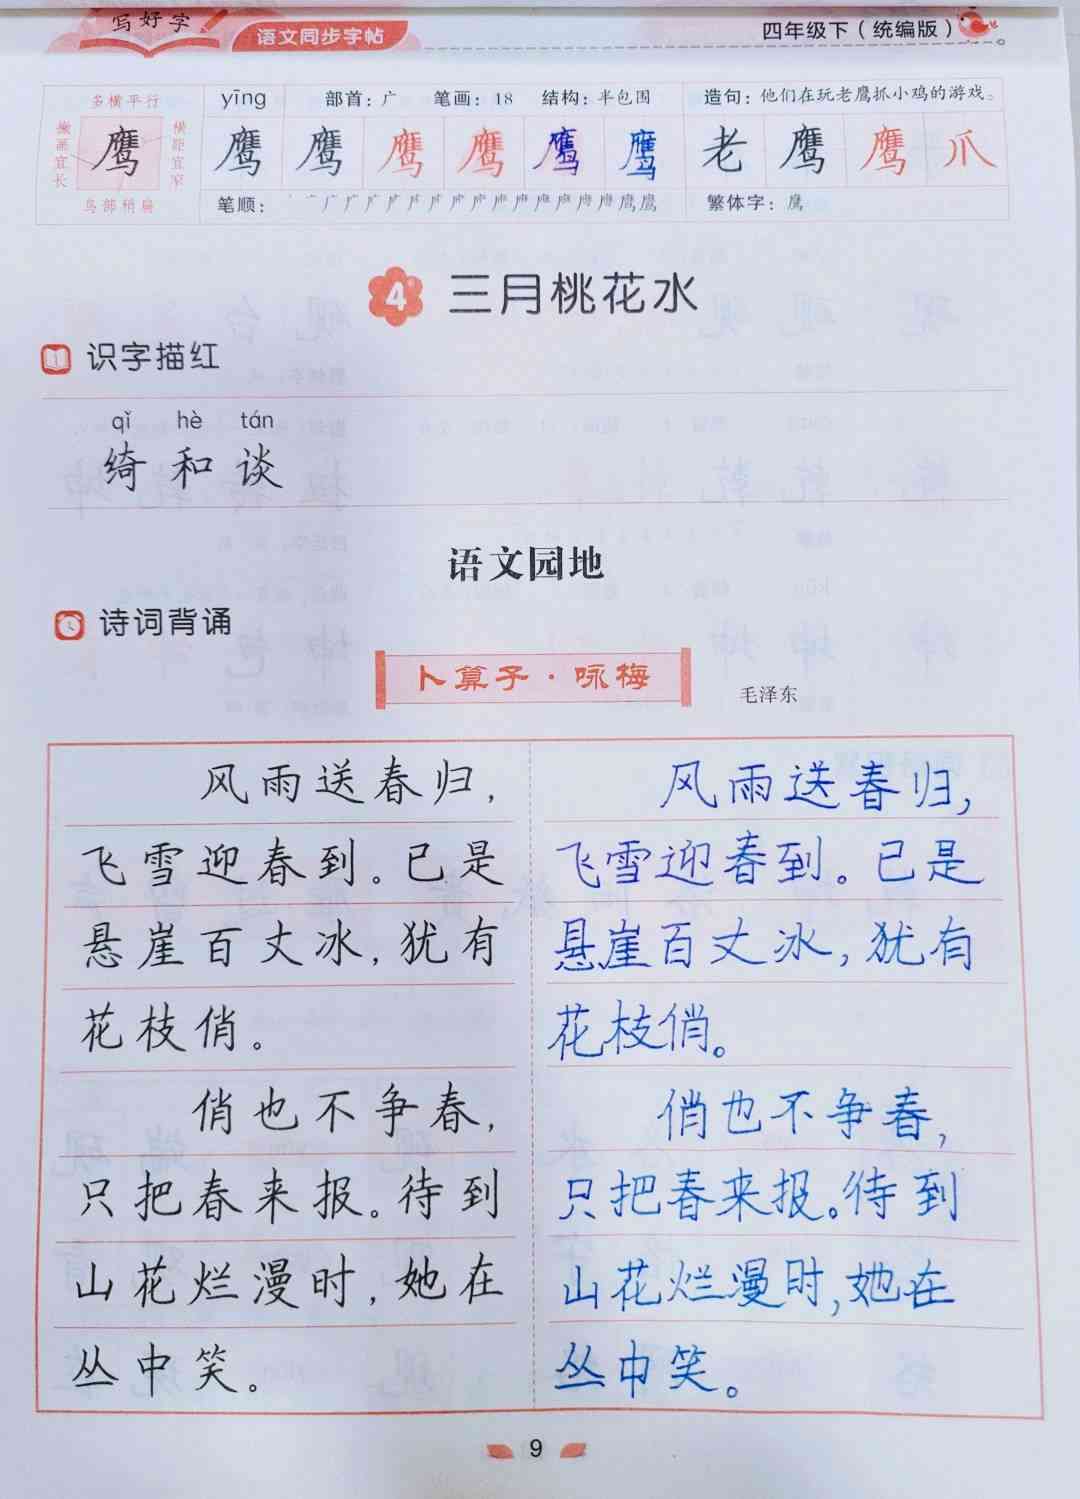 写好字 语文同步字帖 四年级下（统编版）
多横平行
撇画宜长
横距宜窄
鸟部稍扁
鹰
yīng 部首：广 笔画：18 结构：半包围 造句：他们在玩老鹰抓小鸡的游戏。
鹰 鹰 鹰 鹰 鹰 鹰 老 鹰 鹰 爪
笔顺： 繁体字：鹰
4 三月桃花水
识字描红
qǐ hè tán
绮 和 谈
语文园地
诗词背诵
卜算子·咏梅 毛泽东
风雨送春归，
飞雪迎春到。已是
悬崖百丈冰，犹有
花枝俏。
俏也不争春，
只把春来报。待到
山花烂漫时，她在
丛中笑。
风雨送春归，
飞雪迎春到。已是
悬崖百丈冰，犹有
花枝俏。
俏也不争春，
只把春来报。待到
山花烂漫时，她在
丛中笑。
9